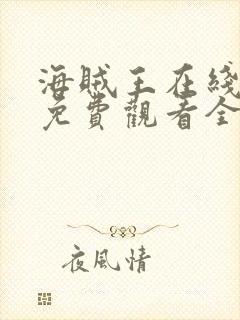 海贼王在线
免費觀看全
夜風情